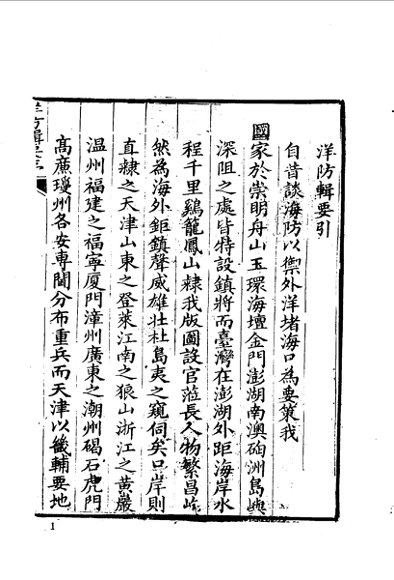 洋防輯要引
自昔談海防以禦外洋堵海口為要策我
國家於崇明舟山玉環海壇金門澎湖南澳硇洲島嶼
深阻之處皆特設鎮將而臺灣在澎湖外距海岸水
程千里鷄籠鳳山隸我版圖設官蒞長人物繁昌屹
然為海外鉅鎮聲威雄壯杜島夷之窺伺矣口岸則
直隸之天津山東之登萊江南之狼山浙江之黃巖
溫州福建之福寧厦門漳州廣東之潮州碣石虎門
高廉瓊州各安專閫分布重兵而天津以畿輔要地
洋防輯要
1